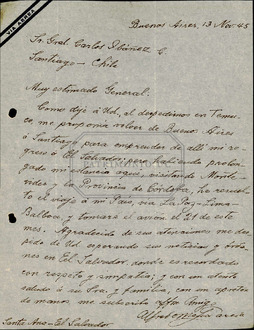 VIA AEREA
Buenos Aires, 13 Nov. 45
Sr. Gral. Carlos Ibáñez C.
Santiago - Chile
Muy estimado General:
Como dije á Ud. al despedirnos en Temu-
co, me proponía volver de Buenos Aires
á Santiago para emprender de allí mi re-
greso á El Salvador; pero habiendo prolon-
gado mi estancia aquí, visitando Monte-
video y la Provincia de Córdoba, he resuelto
el viaje á mi País, vía La Paz-Lima-
Balboa, y tomaré el avión el 21 de este
mes. Agradecido de sus atenciones me des-
pido de Ud. esperando sus noticias y órde-
nes en El Salvador, donde es recordado
con respeto y simpatía; y con un atento
saludo á su Sra. y familia, con un apretón
de manos me suscribo affmo. Amigo
Santa Ana - El Salvador